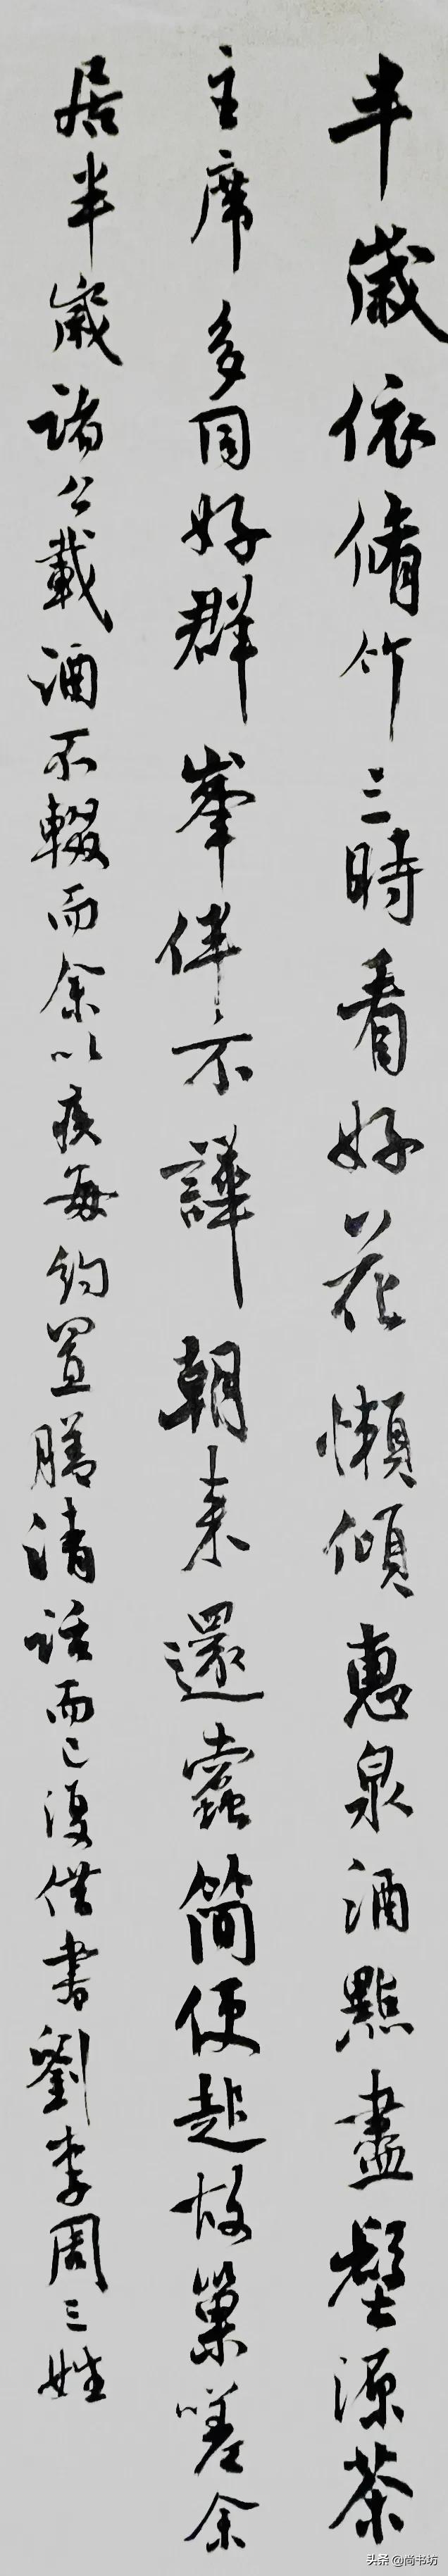 半歲依脩竹三時看好花懶傾惠泉酒點盡壑源茶
主席多同好群峯伴不譁朝来還蠹簡便起故巢嗟余
居半歲諸公載酒不輟而余以疾每約置膳清話而已復借書劉李周三姓
头条 @尚书坊